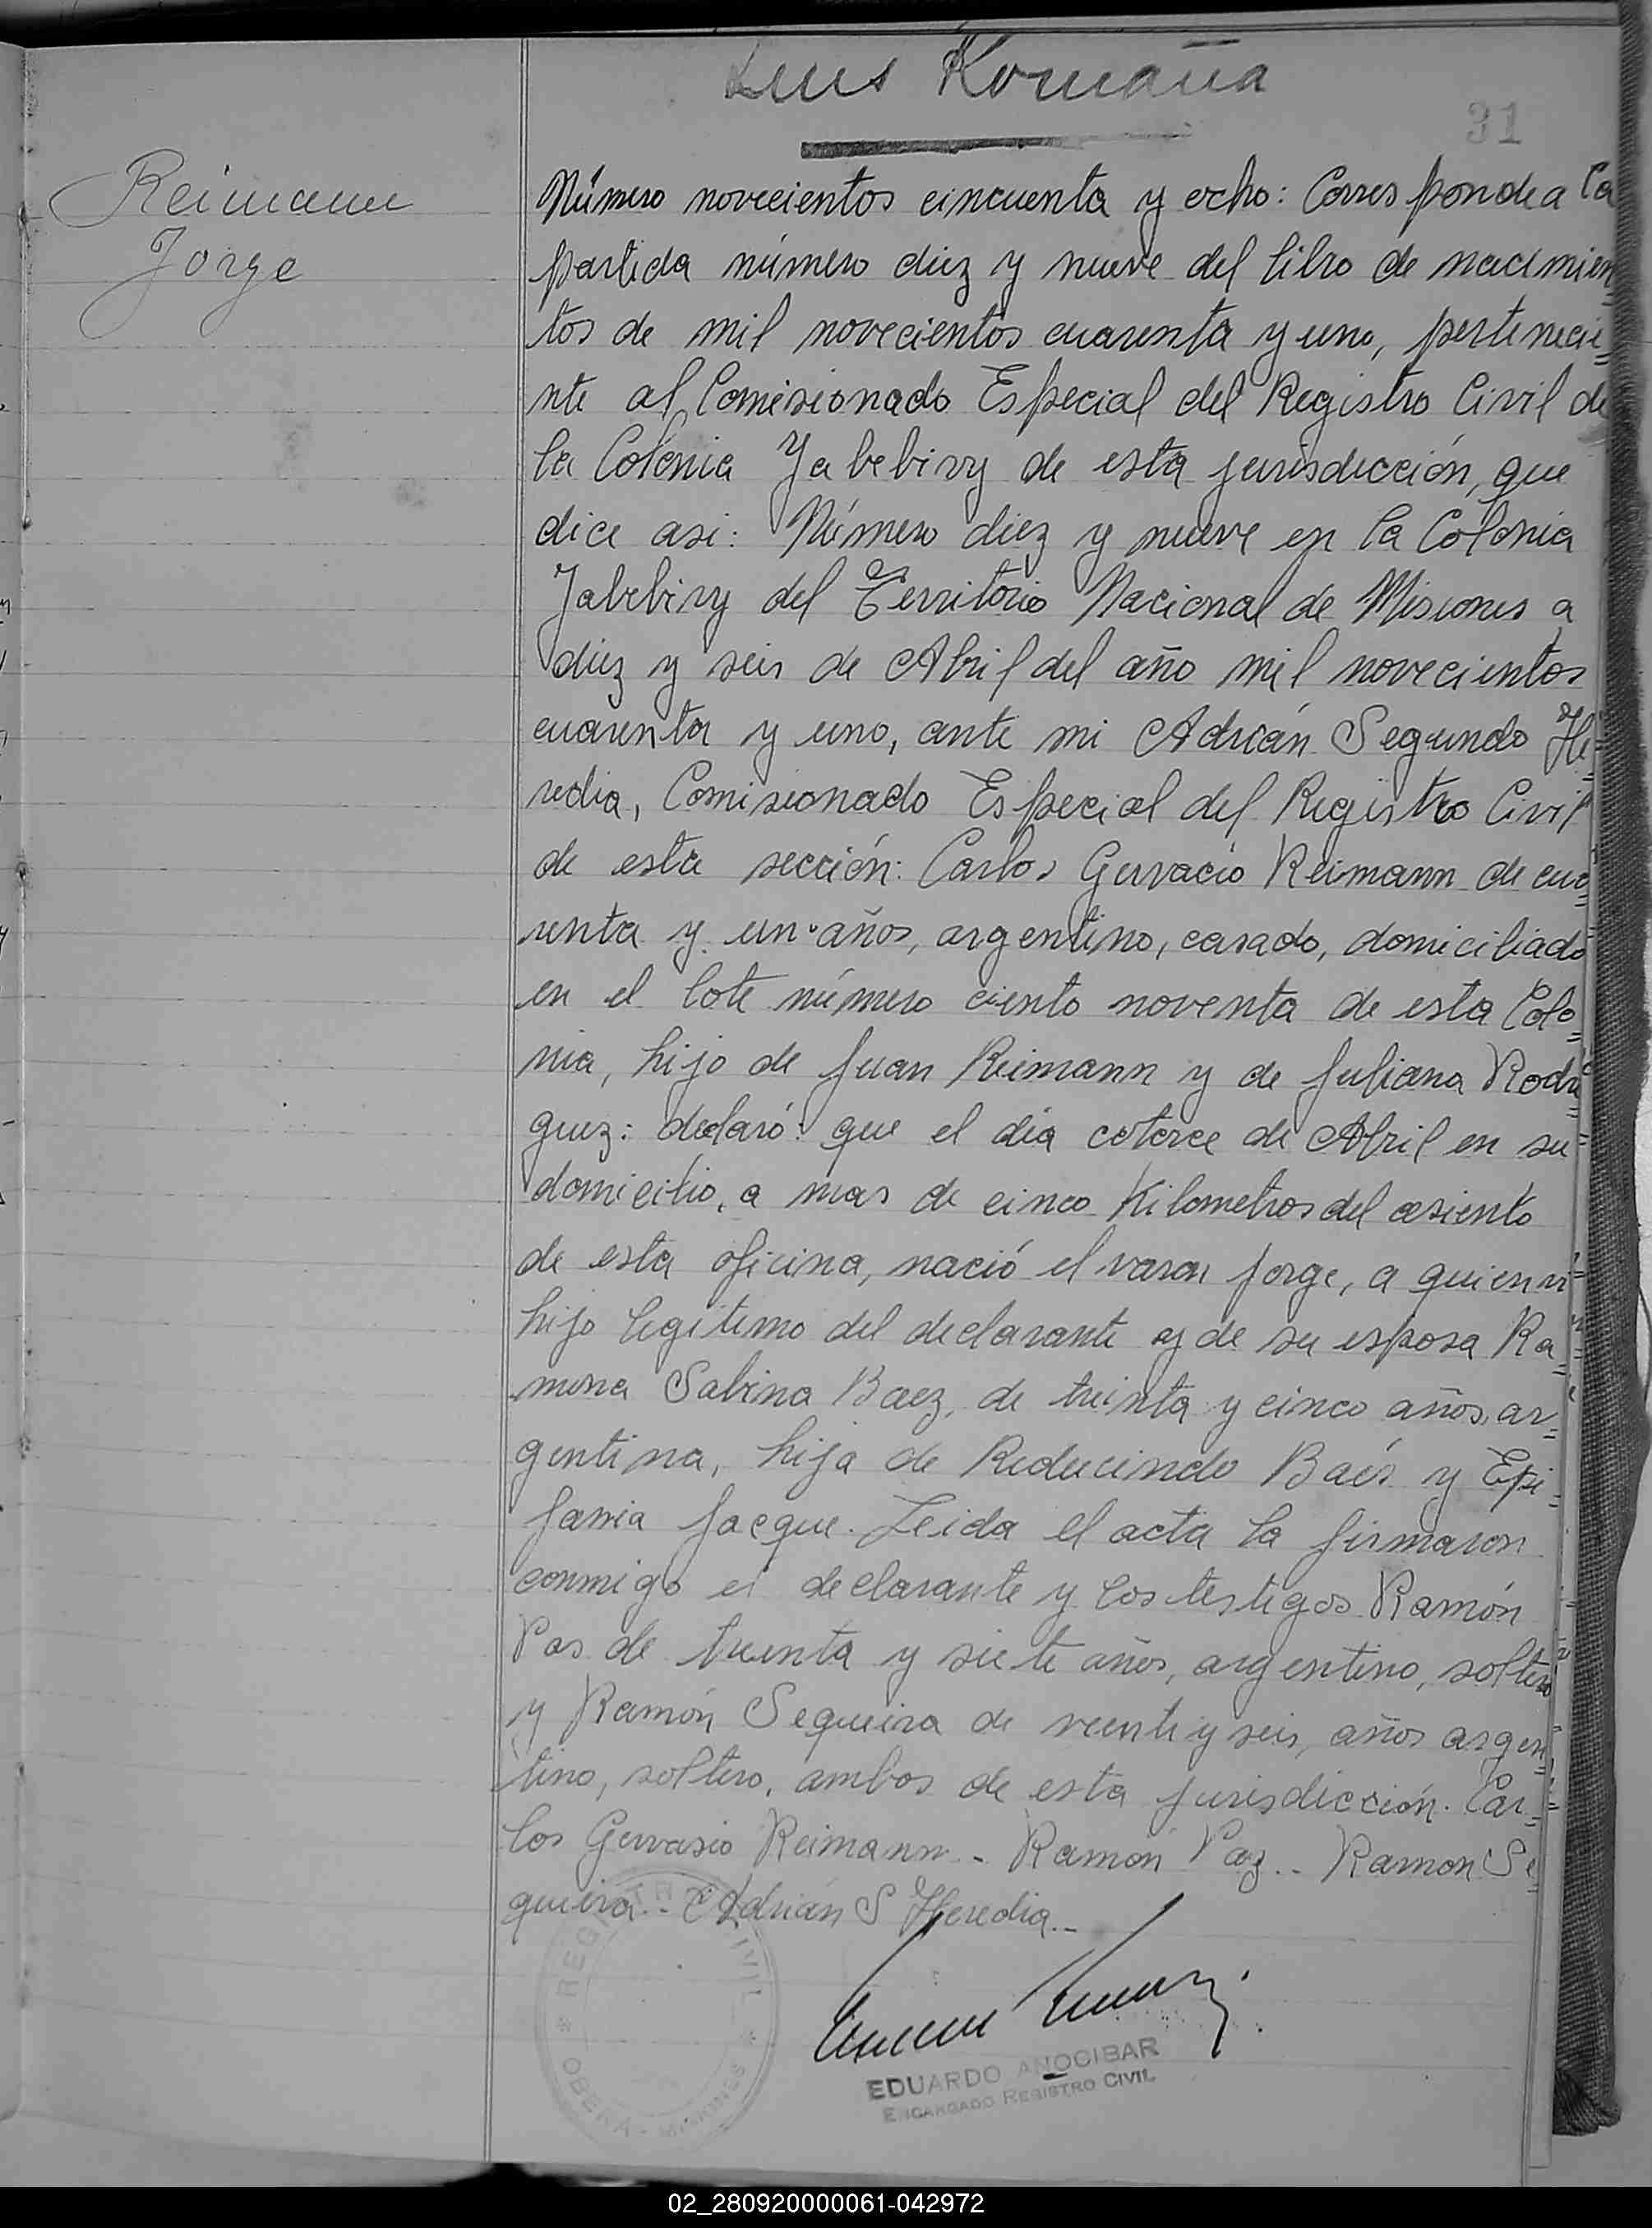 Luis Romaña
31
Reimann
Jorge
Número novecientos cincuenta y ocho: Corresponde a la
partida número diez y nueve del libro de nacimien=
tos de mil novecientos cuarenta y uno, pertenecie=
nte al Comisionado Especial del Registro Civil de
la Colonia Yabebiry de esta jurisdicción, que
dice asi: Número diez y nueve en la Colonia
Yabebiry del Territorio Nacional de Misiones a
diez y seis de Abril del año mil novecientos
cuarenta y uno, ante mi Adrián Segundo He=
redia, Comisionado Especial del Registro Civil
de esta sección: Carlos Gervacio Reimann de cua=
renta y un años, argentino, casado, domiciliado
en el lote número ciento noventa de esta Colo=
nia, hijo de Juan Reimann y de Juliana Rodri=
guez: declaró: que el día catorce de Abril en su
domicilio, a mas de cinco Kilometros del asiento
de esta oficina, nació el varon Jorge, a quien vi
hijo legitimo del declarante y de su esposa Ra=
mona Sabina Baez, de treinta y cinco años, ar=
gentina, hija de Reducindo Baés y Epi=
fania Jacque. Leida el acta la firmaron
conmigo el declarante y los testigos Ramón
Pas de treinta y siete años, argentino, soltero
y Ramón Sequeira de veinte y seis, años argen
tino, soltero, ambos de esta jurisdicción. Car=
los Gervasio Reimann - Ramón Paz - Ramon Se=
queira - Adrián S Heredia. -
REGISTRO CIVIL
OBERA - MISIONES
EDUARDO ANOCIBAR
ENCARGADO REGISTRO CIVIL
02_280920000061-042972